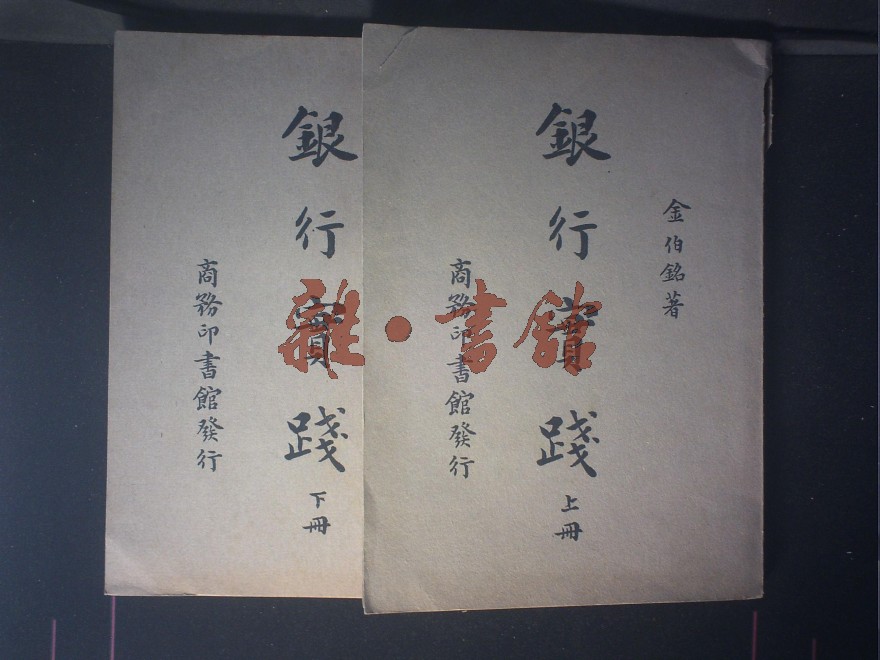 金伯銘著
銀行實踐
上冊
商務印書館發行
銀行實踐
下冊
商務印書館發行
雜·書館